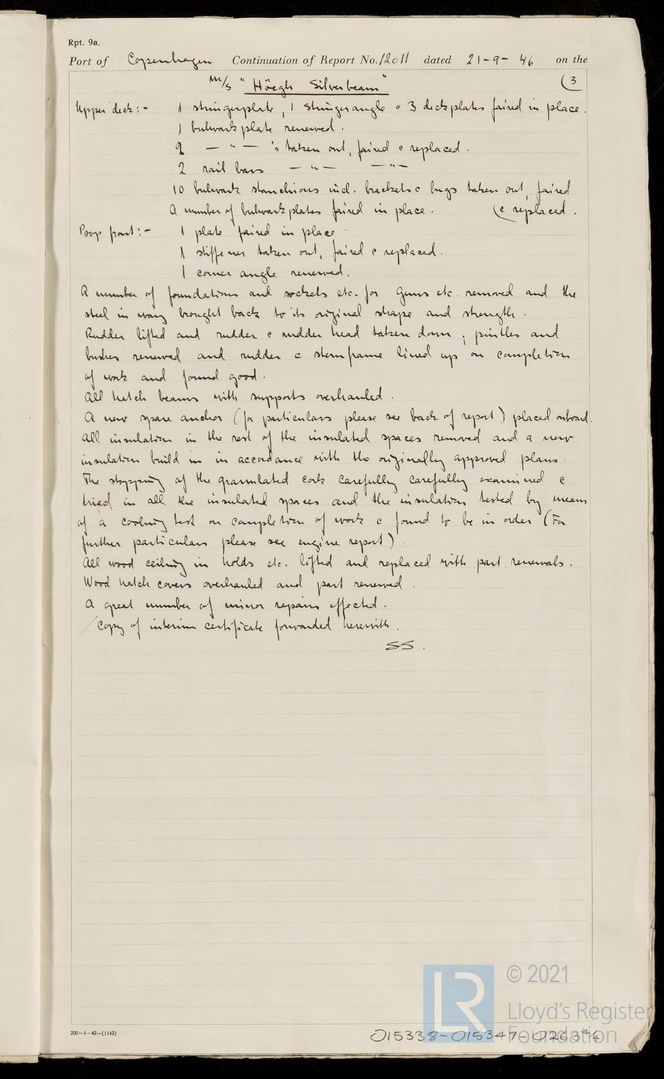 Rpt. 9a.
Port of Copenhagen Continuation of Report No. 12011 dated 21-9-46 on the
m/s "Höegh Silverbeam" (3
Upper deck:- 1 stringerplate, 1 stringerangle & 3 deckplates faired in place.
1 bulwark plate renewed.
2 — " — 's taken out, faired & replaced.
2 rail bars — " — — " —
10 bulwark stanchions incl. brackets & lugs taken out, faired
A number of bulwark plates faired in place. (& replaced.
Poop front:- 1 plate faired in place
1 stiffener taken out, faired & replaced.
1 corner angle renewed.
A number of foundations and sockets etc. for guns etc. removed and the
steel in way brought back to its original shape and strength.
Rudder lifted and rudder & rudder head taken down, pintles and
bushes renewed and rudder & sternframe lined up on completion
of work and found good.
All hatch beams with supports overhauled.
A new spare anchor (for particulars please see back of report) placed onboard.
All insulation in the rest of the insulated spaces removed and a new
insulation build in in accordance with the originally approved plans.
The stopping of the granulated cork carefully carefully examined &
tried in all the insulated spaces and the insulation tested by means
of a cooling test on completion of work & found to be in order (For
further particulars please see engine report)
All wood ceiling in holds etc. lifted and replaced with part renewals.
Wood hatch covers overhauled and part renewed.
A great number of minor repairs effected.
Copy of interim certificate forwarded herewith.
SS.
200—1—42—(1142)
LR
© 2021
Lloyd's Register
Foundation
015338-015347-0263